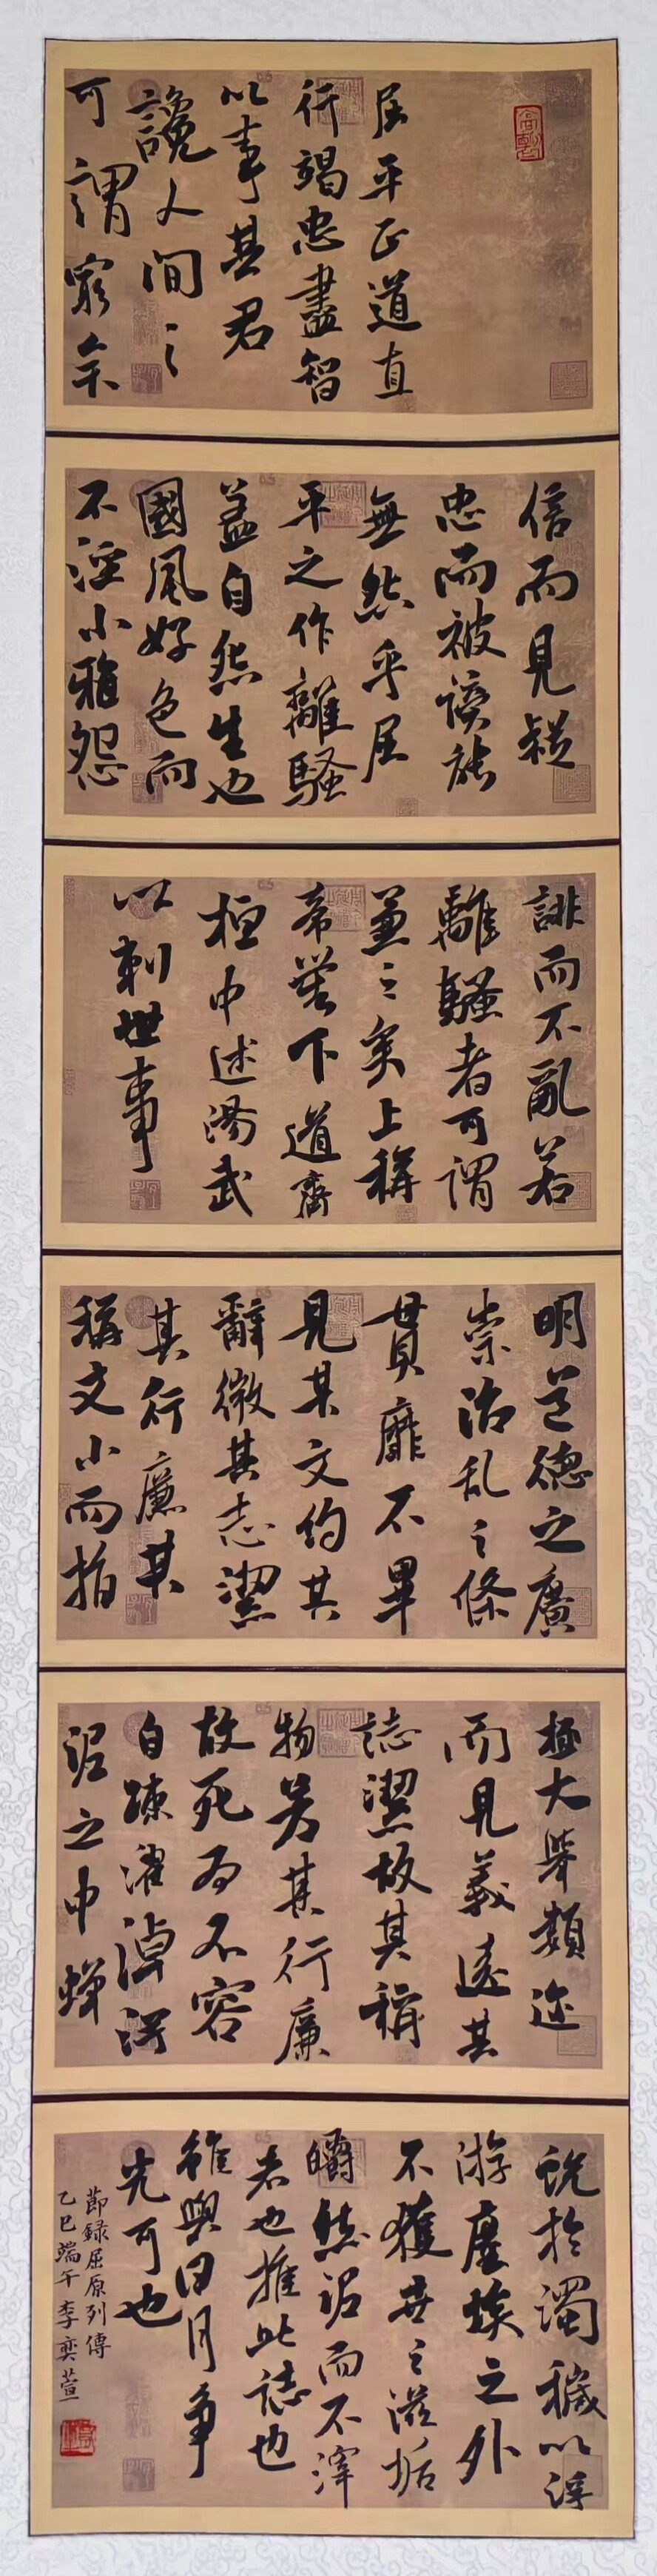 屈平正道直
行竭忠盡智
以事其君
讒人間之
可謂窮矣
信而見疑
忠而被謗能
無怨乎屈
平之作離騷
蓋自怨生也
國風好色而
不淫小雅怨
誹而不亂若
離騷者可謂
兼之矣上稱
帝嚳下道齊
桓中述湯武
以刺世事
明道德之廣
崇治乱之條
貫靡不畢
見其文約其
辭微其志潔
其行廉其
稱文小而指
極大舉類迩
而見義遠其
誌潔故其稱
物芳其行廉
故死而不容
自疎濯淖汙
泥之中蟬
蛻於濁穢以浮
游塵埃之外
不獲世之滋垢
皭然泥而不滓
者也推此誌也
雖與日月爭
光可也
節録屈原列傳
乙巳端午李奕萱